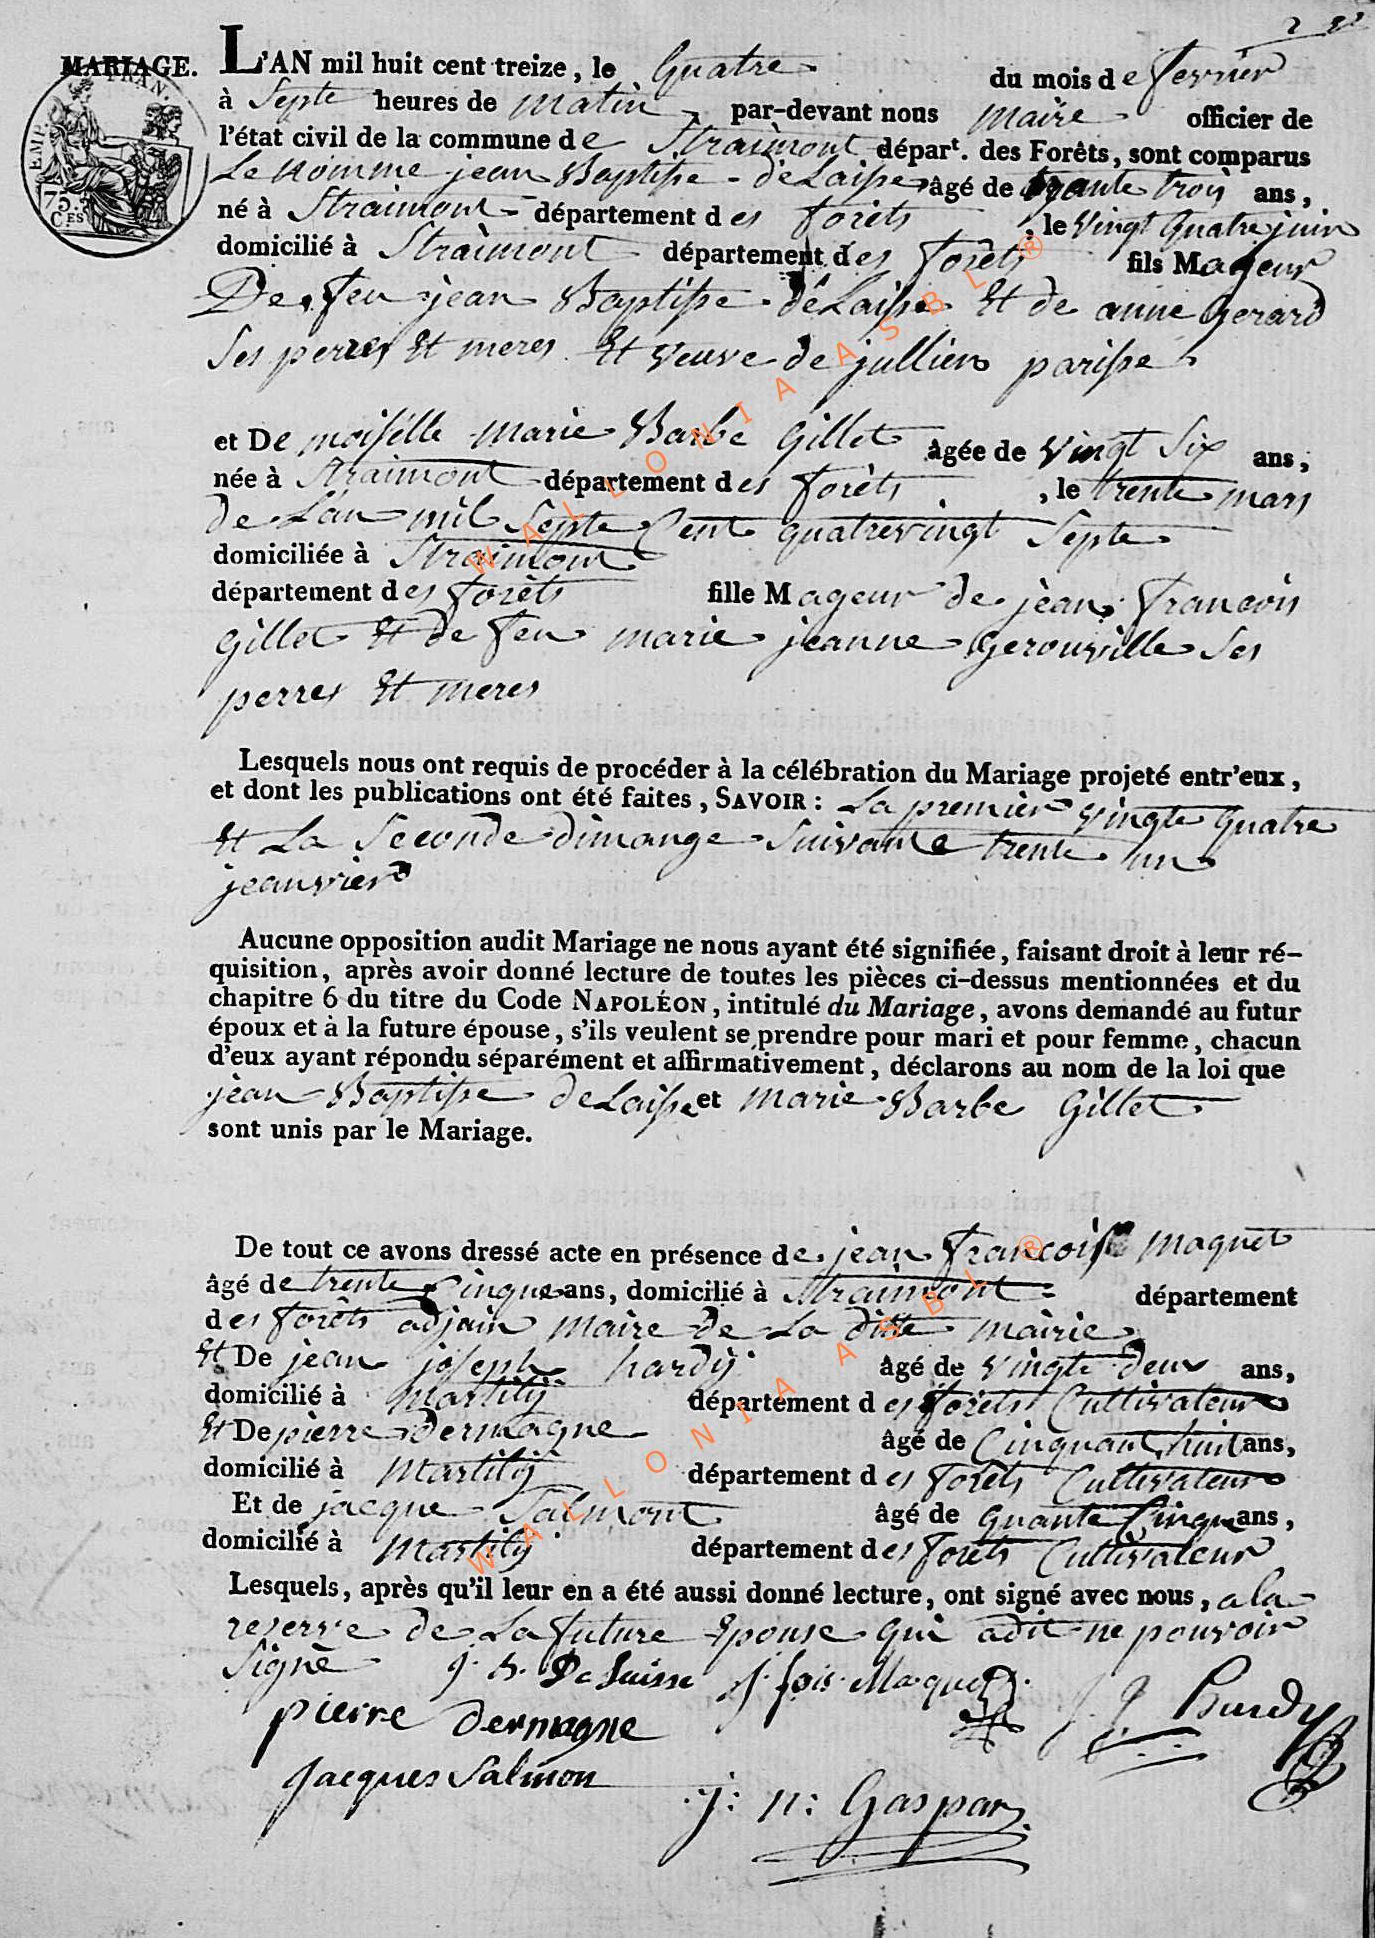 2
MARIAGE. L'AN mil huit cent treize, le quatre du mois de fevrier
à Septe heures de matin par-devant nous maire officier de
l'état civil de la commune de Straimont départ. des Forêts, sont comparus
Le nomme jean Baptisse deLaisse âgé de trante trois ans,
né à Straimont département des forêts, le vingt quatre juin
domicilié à Straimont département des forêts fils Mageur
De feu jean Baptisse deLaisse Et de anne gerard
Ses perres Et meres Et veuve de jullien parisse
et Demoiselle marie Barbe gillet âgée de vingt Six ans,
née à Straimont département des forêts, le trente mars
de L'an mil Septe Cent quatrevingt Septe
domiciliée à Straimont
département des forêts fille Mageur de jean francois
gillet Et de feu marie jeanne gerouville Ses
perres Et meres
Lesquels nous ont requis de procéder à la célébration du Mariage projeté entr'eux,
et dont les publications ont été faites, SAVOIR : La premier vingte quatre
Et La Seconde dimange Suivante trente un
jeanvier
Aucune opposition audit Mariage ne nous ayant été signifiée, faisant droit à leur ré-
quisition, après avoir donné lecture de toutes les pièces ci-dessus mentionnées et du
chapitre 6 du titre du Code NAPOLÉON, intitulé du Mariage, avons demandé au futur
époux et à la future épouse, s'ils veulent se prendre pour mari et pour femme, chacun
d'eux ayant répondu séparément et affirmativement, déclarons au nom de la loi que
jean Baptisse deLaisse et marie Barbe gillet
sont unis par le Mariage.
De tout ce avons dressé acte en présence de jean francois maquet
âgé de trente Cinque ans, domicilié à Straimont département
des forêts adjoin maire de La ditte mairie
Et De jean joseph hardy âgé de vingte deux ans,
domicilié à Martilij département des forêts Cultivateur
Et De pierre Dermagne âgé de Cinquant huit ans,
domicilié à Martilij département des forêts Cultivateur
Et de jacque Salmont âgé de quante Cinque ans,
domicilié à Martilij département des forêts Cultivateur
Lesquels, après qu'il leur en a été aussi donné lecture, ont signé avec nous, a la
reserve de La future Epouse qui adit ne pouvoir
Signè J. B. De Laisse J. fois. Maquet J J Hardy
pierre dermagne
jacques Salmon j: n: Gaspar
EMP. FRAN.
75.
CES
WALLONIA ASBL ®
WALLONIA ASBL ®